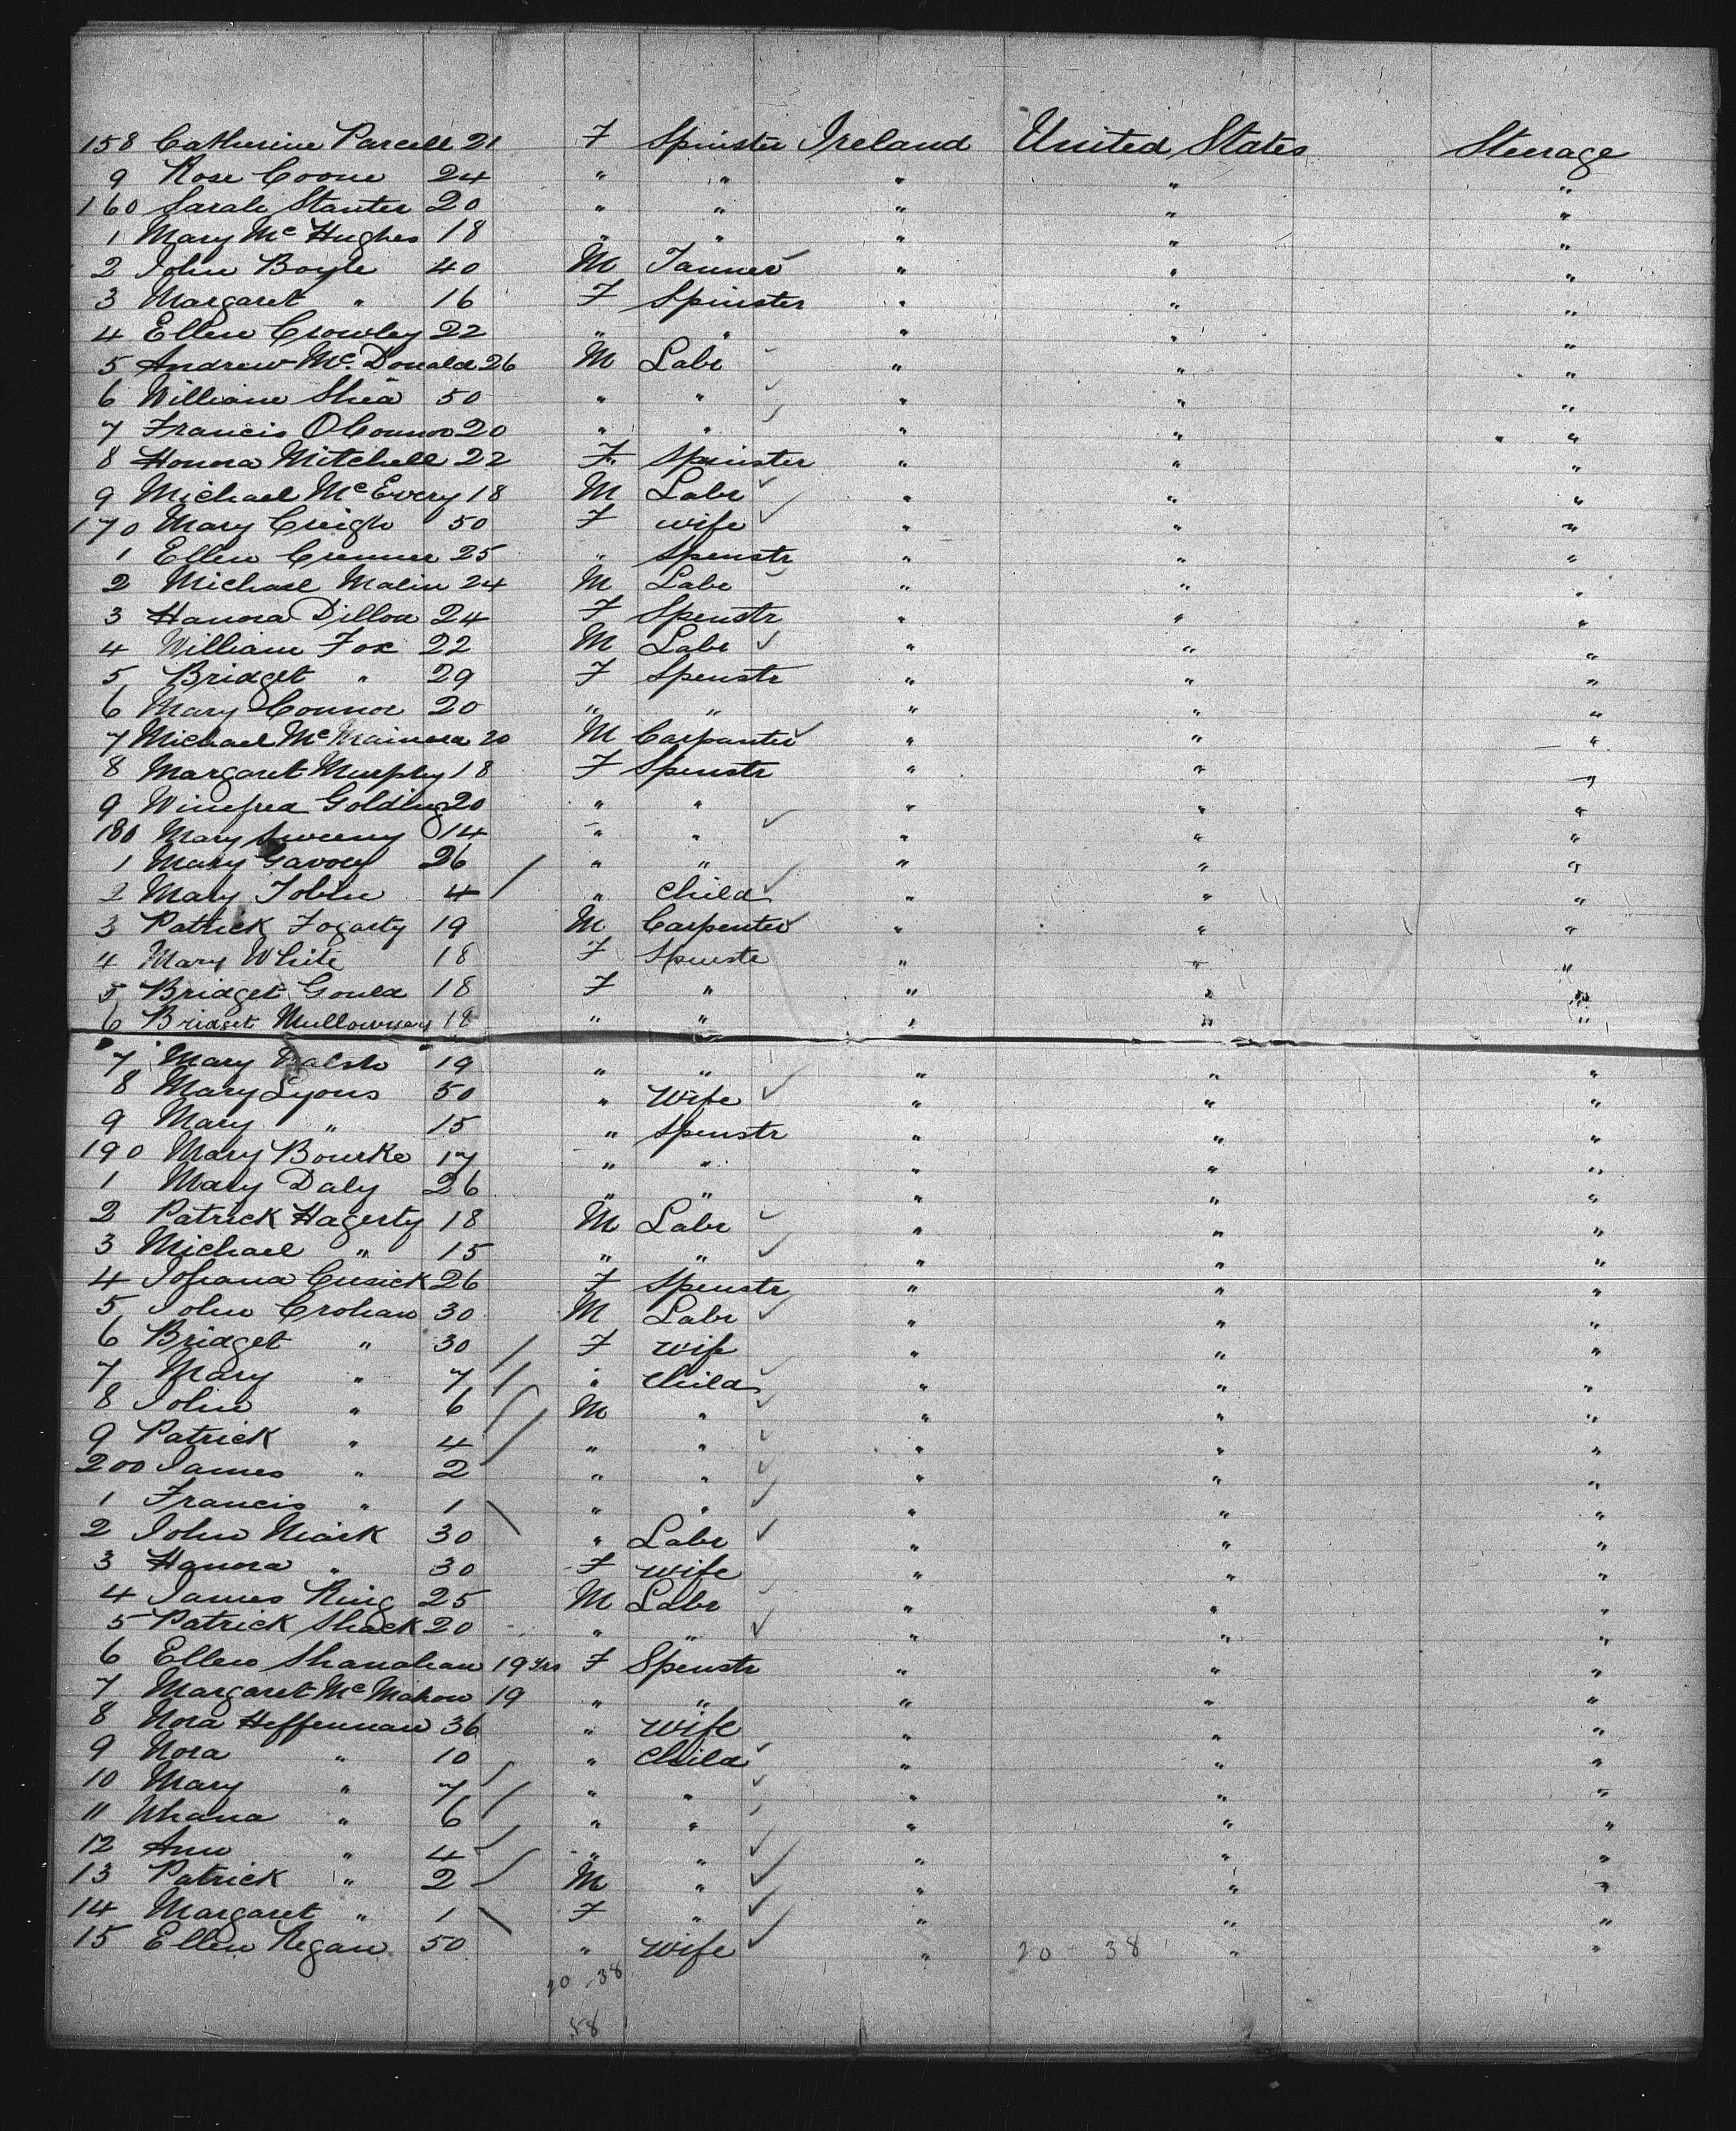 158 Catherine Parcell 21 F Spinster Ireland United States Steerage
9 Rose Coone 24 " " " " "
160 Sarah Stanter 20 " " " " "
1 Mary Mc Hughes 18 " " " " "
2 John Boyle 40 M Tanner " " "
3 Margaret " 16 F Spinster " " "
4 Ellen Crowley 22 " " " " "
5 Andrew Mc Donald 26 M Labr " " "
6 William Shea 50 " " " " "
7 Francis OConnor 20 " " " " "
8 Honora Mitchell 22 F Spinster " " "
9 Michael McEvery 18 M Labr " " "
170 Mary Creigh 50 F wife " " "
1 Ellen Cremer 25 " Spenstr " " "
2 Michael Malin 24 M Labr " " "
3 Hanora Dillon 24 F Spenstr " " "
4 William Fox 22 M Labr " " "
5 Bridget " 29 F Spenstr " " "
6 Mary Connor 20 " " " " "
7 Michael Mc 20 M Carpanter " " "
8 Margaret Murphy 18 F Spenstr " " "
9 Winefred Golding 20 " " " " "
180 Mary Sweeny 14 " " " " "
1 Mary Gavory 26 " " " " "
2 Mary Tobin 4 " Child " " "
3 Patrick Fogarty 19 M Carpenter " " "
4 Mary White 18 F Spenste " " "
5 Bridget Gould 18 F " " " "
6 Bridget Mullowney 18 " " " " "
7 Mary Walsh 19 " " " " "
8 Mary Lyons 50 " Wife " " "
9 Mary " 15 " Spenstr " " "
190 Mary Bourke 17 " " " " "
1 Mary Daly 26 " " " " "
2 Patrick Hagerty 18 M Labr " " "
3 Michael " 15 " " " " "
4 Johana Cusick 26 F Spenstr " " "
5 John Crohan 30 M Labr " " "
6 Bridget " 30 F wife " " "
7 Mary " 7 " Child " " "
8 John " 6 M " " " "
9 Patrick " 4 " " " " "
200 James " 2 " " " " "
1 Francis " 1 " " " " "
2 John Mark 30 " Labr " " "
3 Hanora " 30 F wife " " "
4 James Ring 25 M Labr " " "
5 Patrick Shack 20 " " " " "
6 Ellen Shanahan 19 yrs F Spenstr " " "
7 Margaret Mc Mahon 19 " " " " "
8 Nora Heffernan 36 " Wife " " "
9 Nora " 10 " Child " " "
10 Mary " 7 " " " " "
11 Uhana " 6 " " " " "
12 Ann " 4 " " " " "
13 Patrick " 2 M " " " "
14 Margaret " 1 F " " " "
15 Ellen Regan 50 " Wife " 20 - 38 " "
20 - 38
58